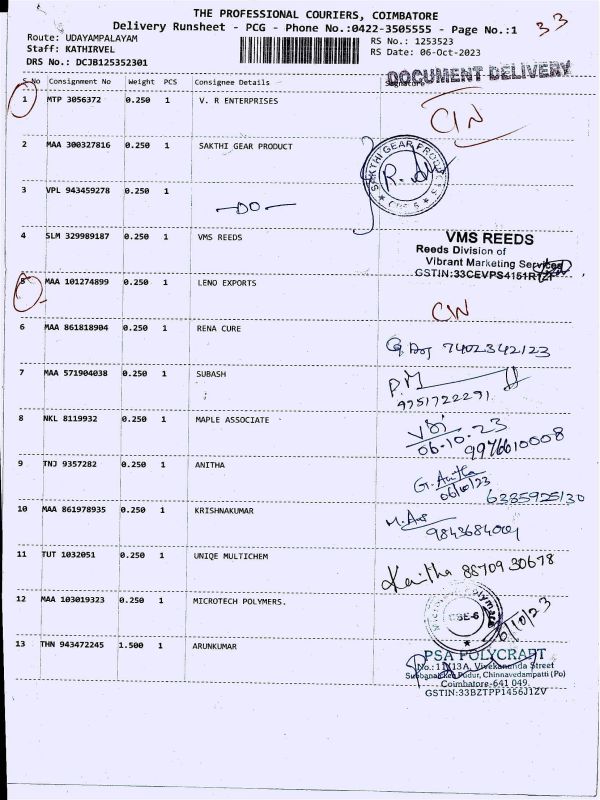 THE PROFESSIONAL COURIERS, COIMBATORE
Delivery Runsheet - PCG - Phone No.:0422-3505555 - Page No.:1
33
Route: UDAYAMPALAYAM
Staff: KATHIRVEL
DRS No.: DCJB125352301
RS No.: 1253523
RS Date: 06-Oct-2023
DOCUMENT DELIVERY
S.No Consignment No Weight PCS Consignee Details Signature
1 MTP 3056372 0.250 1 V. R ENTERPRISES
CIN
2 MAA 300327816 0.250 1 SAKTHI GEAR PRODUCT
SAKTHI GEAR PRODUCTS
CBE-6
3 VPL 943459278 0.250 1 -DO-
4 SLM 329989187 0.250 1 VMS REEDS
VMS REEDS
Reeds Division of
Vibrant Marketing Services
5 MAA 101274899 0.250 1 LENO EXPORTS
CIN
6 MAA 861818904 0.250 1 RENA CURE
7402342123
7 MAA 571904038 0.250 1 SUBASH
P.M
9751722291
8 NKL 8119932 0.250 1 MAPLE ASSOCIATE
06.10.23
9976610008
9 TNJ 9357282 0.250 1 ANITHA
G. Anitha
06/10/23
6385925130
10 MAA 861978935 0.250 1 KRISHNAKUMAR
11 TUT 1032051 0.250 1 UNIQE MULTICHEM
88709 30678
12 MAA 103019323 0.250 1 MICROTECH POLYMERS.
CBE-6
6/10/23
13 THN 943472245 1.500 1 ARUNKUMAR
PSA POLYCRAFT
No.: 11/13A, Vivekananda Street
Pudur, Chinnavedampatti (Po)
Coimbatore-641 049.
GSTIN:33BZTPP1456J1ZV